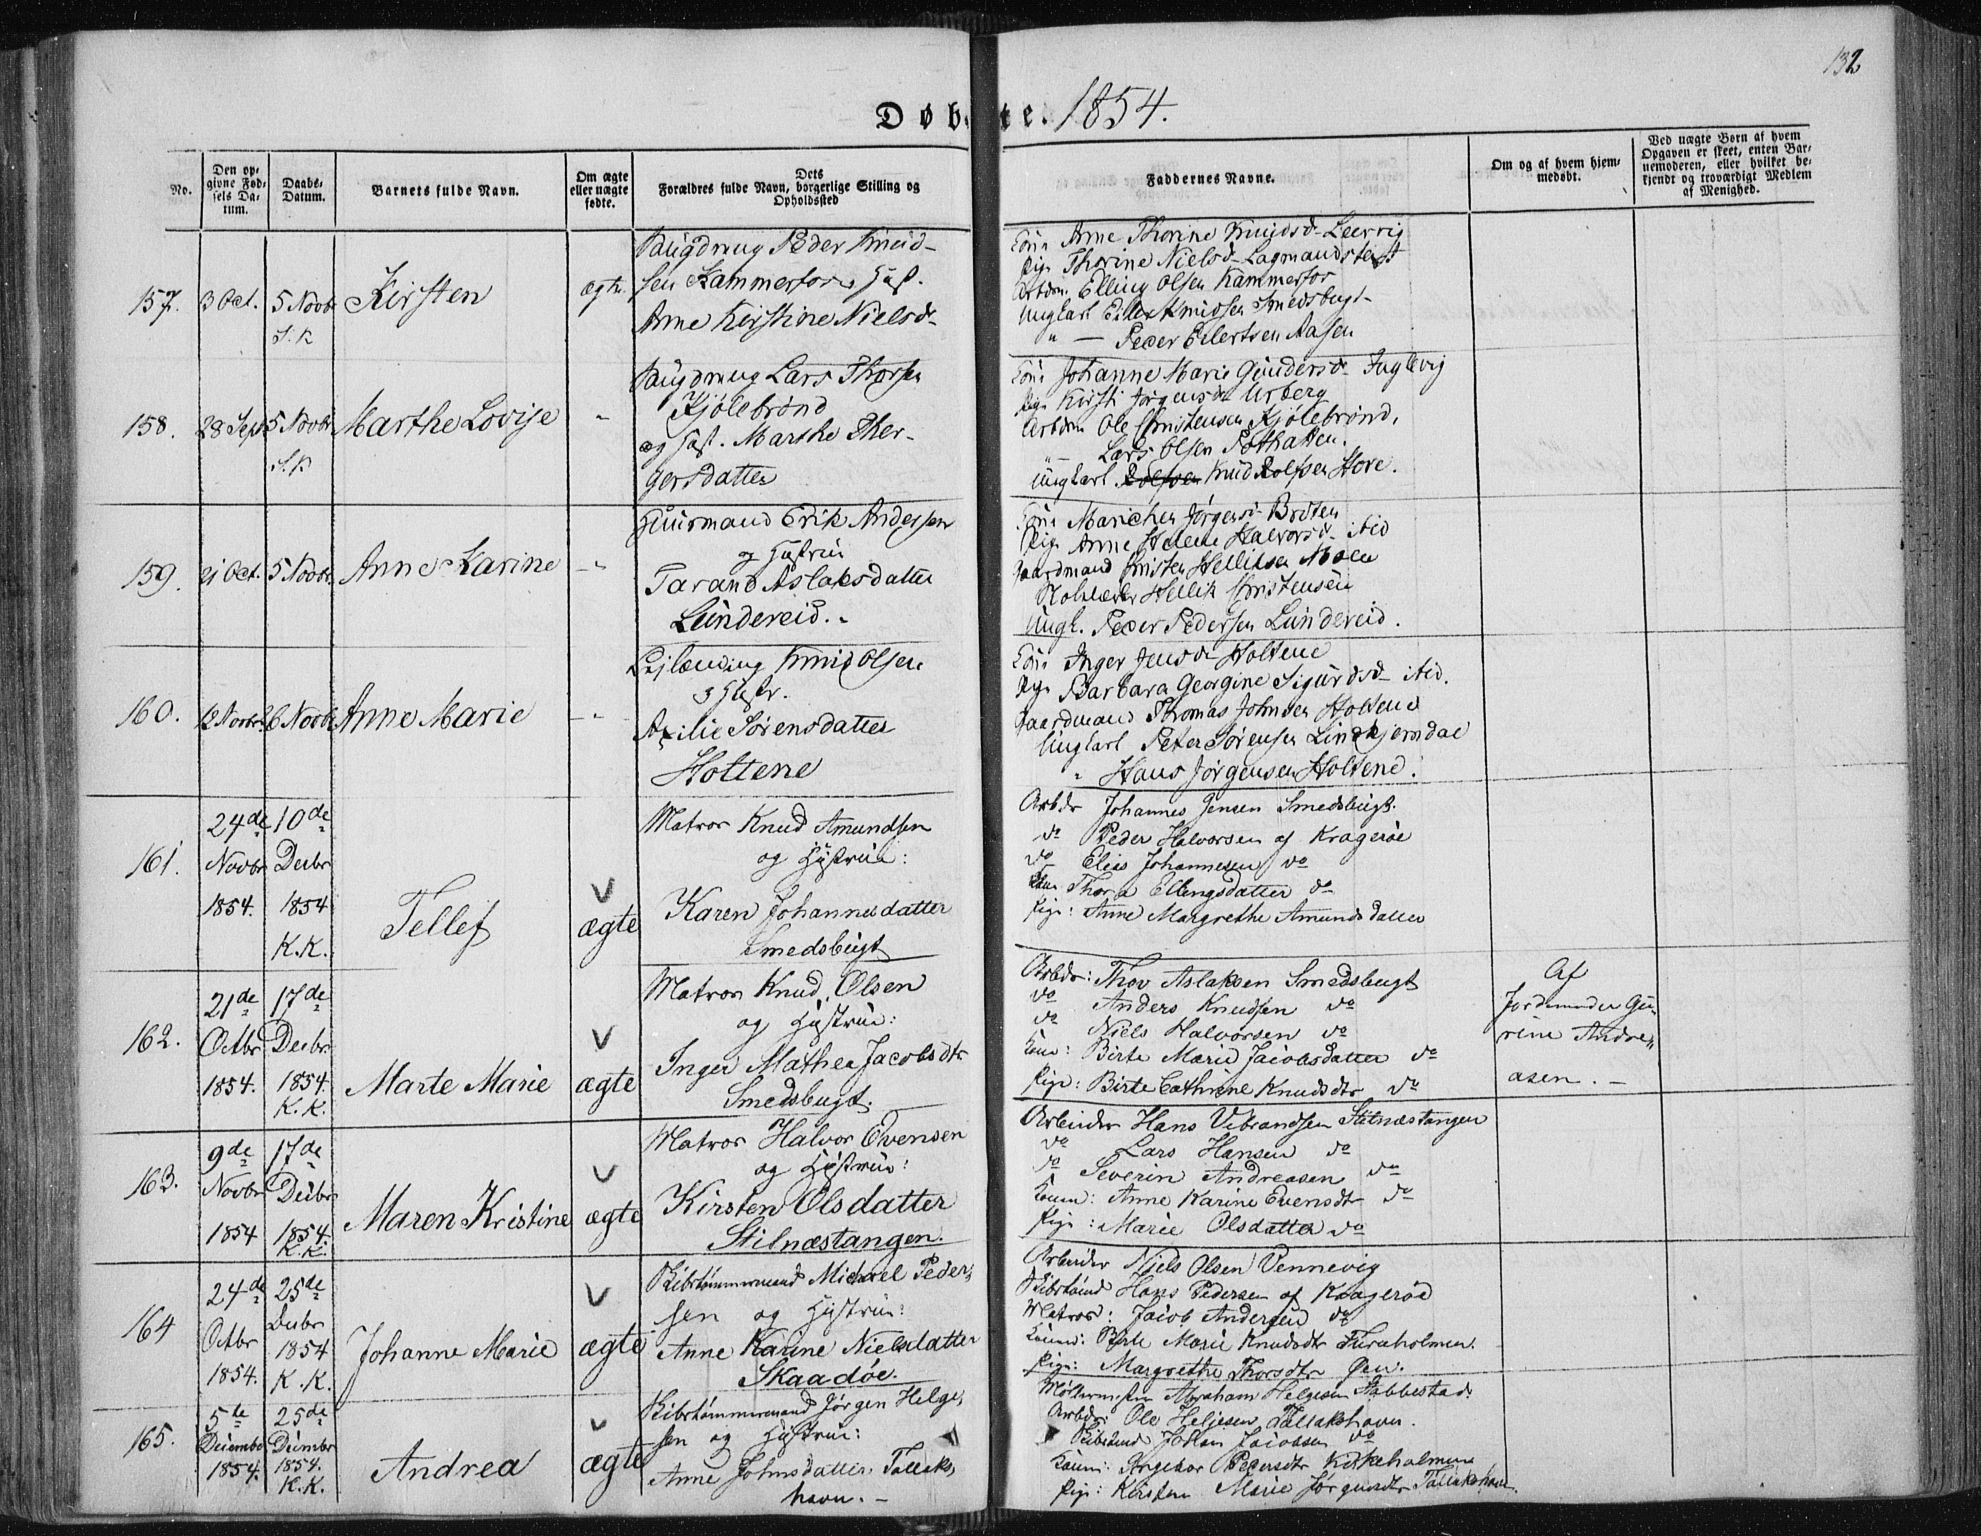 132
Døbte. 1854.
No.
Den op-
givne Fød-
sels Da-
tum.
Daabs-
Datum.
Barnets fulde Navn.
Om ægte
eller uægte
fødte.
Dets
Forældres fulde Navn, borgerlige Stilling og
Opholdssted
Faddernes Navne.
Om og af hvem hjem-
medøbt.
Ved uægte Børn af hvem
Opgaven er skeet, enten Bar-
nemoderen, eller hvilket be-
kjendt og troværdigt Medlem
af Menighed.
157.
3 Oct.
5 Novbr
S. K
Kirsten
ægte.
Peder Knud-
sen Kammerfos Hust.
Anne Kirstine Nielsd.
Kone Anne Thorine Knudsd. Leervig
Pige Thorine Nielsd. Lagmandstedt
Arbdm. Elling Olsen Kammerfos
Ungkarl Eilert Knudsen Smedsbugt
" — Peder Eilertsen Aasen
158.
28 Sept
5 Novbr
S. K
Marthe Lovise
"
Lars Thorsen
Kjölebrönd
og Hust. Marthe Ther-
gersdatter
Kone Johanne Marie Gundersd. Fuglevig
Pige Kirsti Jörgensd. Urberg
Arbdm Ole Christensen Kjölebrönd,
" — Lars Olsen Pothatten.
Ungkarl Rolfsen Knud Rolfsen Hove.
159.
21 Oct.
5 Novbr.
Anne Karine
- "
Huusmand Erik Andersen
og Hustrue
Tarand Aslaksdatter
Lundereid.
Kone Marichen Jørgensd. Bråten
Pige Anne Helene Halvorsd. ibid
Gaardmand Christen Helliksen Moen
Hellik Christensen
Ungk. Peder Pedersen Lundereid.
160.
12 Novbr.
26 Novbr
Anne Marie
- "
Leilænding Knud Olsen
og Hustr.
Axilie Sørensdatter
Holtene
Kone Inger Jensd. Holtene
Pige Barbara Georgine Sigurdsd. ibid.
Gaardmand Thomas Johnsen Holtene
Ungkarl Peter Sørensen Lindhjemdal
" Hans Jørgensen Holtene.
161.
24de
Novbr
1854.
10de
Decbr
1854
K. K.
Tellef
ægte
Matros Knud Amundsen
og Hustrue:
Karen Johannesdatter
Smedsbugt
Arbdr Johannes Jensen Smedsbugt.
do Peder Halvorsen af Kragerøe
do Elias Johannesen do
Kone Thora Ellingsdatter do
Pige: Anne Margrethe Amundsdatter
162.
21de
Octbr
1854.
17de
Decbr
1854.
K. K.
Marte Marie
ægte
Matros Knud Olsen
og Hustrue:
Inger Mathea Jacobsdtr
Smedsbugt.
Arbdr: Thov Aslaksen Smedsbugt
do Anders Knudsen do
do Niels Halvorsen do
Kone: Birte Marie Jacobsdatter do
Pige: Birte Cathrine Knudsdtr do
Af
Jordemoder Gu-
rine Andre,,
asen. —
163.
9de
Novbr
1854
17de
Decbr
1854.
K. K.
Maren Kristine
ægte
Matros Halvor Evensen
og Hustrue:
Kirsten Olsdatter
Stilnæstangen.
Arbeider Hans Vebrandsen Stilnæstangen
do Lars Hansen do
do Severin Andreasen do
Kone: Anne Karine Evensdtr do
Pige: Marie Olsdatter do
164
24de
Octbr
1854.
25de
Decbr
1854
K. K.
Johanne Marie
ægte
Skibstømmermand Michael Peder,,
sen og Hustrue:
Anne Karine Nielsdatter
Skaadöe.
Arbeider Niels Olsen Vennevig
Skibstømd Hans Pedersen af Kragerøe
Matros: Jacob Andersen do
Kone: Birte Marie Knudsdtr Furuholmen.
Pige: Margrethe Thorsdtr Øen.
165.
5te
Decembr
1854.
25de
Decmbr
1854.
K. K.
Andrea
ægte
Skibstømmermand Jörgen Helge,,
sen og Hustrue:
Anne Johnsdatter Tallaks,,
havn. —
Abraham Helgesen Stabbestad.
Arbdr: Ole Helgesen Tallakshavn.
Johan Jacobsen do
Kone: Ingebor Pedersdtr Kirkeholmen
Pige: Kirsten Marie Jörgensdtr Tallakshavn.